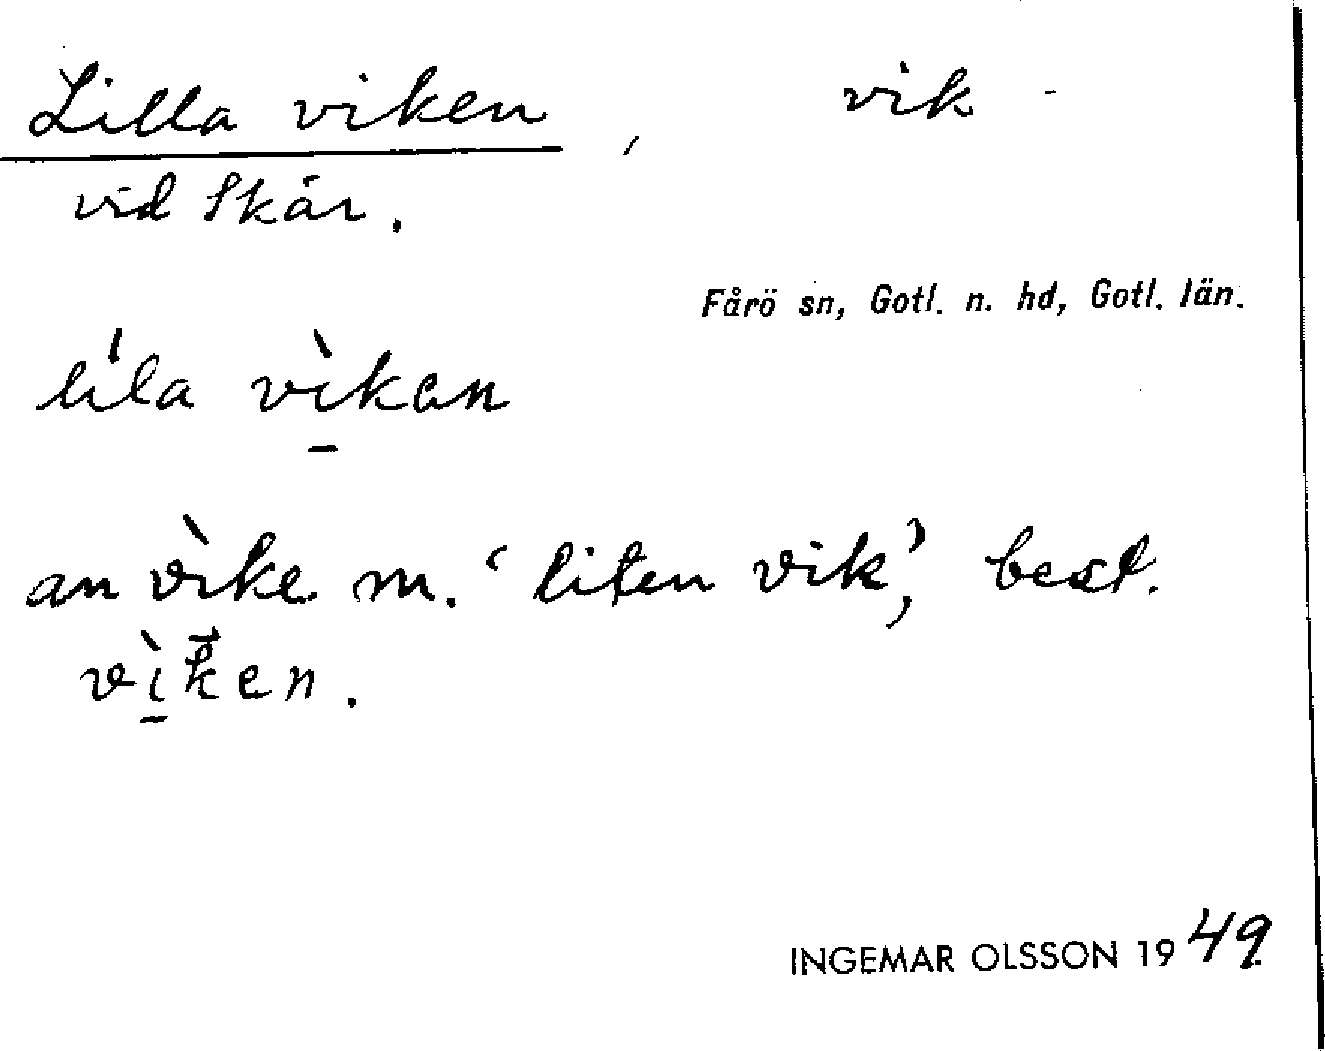 Lilla viken, vik -
vid Skär.
Fårö sn, Gotl. n. hd, Gotl. län.
líla vı̱̀kan
an vìke m. ‘liten vik’, best.
vı̱̀k̄en.
INGEMAR OLSSON 1949.